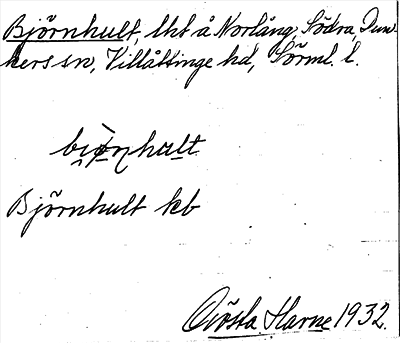 Björnhult, lht å Norlång, Södra, Dun-
kers sn, Villåttinge hd, Sörml. l.
Björnhult kb
Gösta Harne 1932.